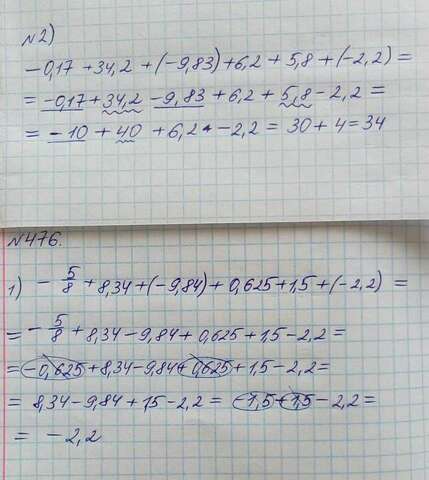 №2)
-0,17 + 34,2 + (-9,83) + 6,2 + 5,8 + (-2,2) =
= -0,17 + 34,2 - 9,83 + 6,2 + 5,8 - 2,2 =
= -10 + 40 + 6,2 - 2,2 = 30 + 4 = 34
№476.
1) - 5/8 + 8,34 + (-9,84) + 0,625 + 1,5 + (-2,2) =
= - 5/8 + 8,34 - 9,84 + 0,625 + 1,5 - 2,2 =
= -0,625 + 8,34 - 9,84 + 0,625 + 1,5 - 2,2 =
= 8,34 - 9,84 + 1,5 - 2,2 = -1,5 + 1,5 - 2,2 =
= -2,2